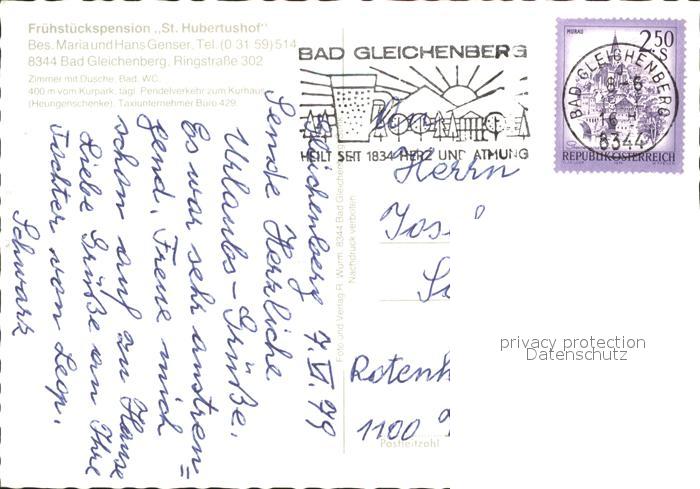 Frühstückspension „St. Hubertushof"
Bes. Maria und Hans Genser, Tel. (0 31 59) 514
8344 Bad Gleichenberg, Ringstraße 302
Zimmer mit Dusche, Bad, WC.
400 m vom Kurpark, tägl. Pendelverkehr zum Kurhaus
(Heurigenschenke). Taxiunternehmer Büro 429.
BAD GLEICHENBERG
HEILT SEIT 1834 HERZ UND ATMUNG
MURAU
2.50
S
BAD GLEICHENBERG
8344
REPUBLIK ÖSTERREICH
Gleichenberg 7. VI. 79
Sende Herzliche
Urlaubs-Grüße.
Es war sehr anstren=
gend. Freue mich
schon auf zu Hause
Liebe Grüße an Ihre
Tochter von Leop.
Schwarz
Foto und Verlag R. Wurm, 8344 Bad Gleichenberg
Nachdruck verboten
An
Herrn
Jos
Rotenh
1100
Postleitzahl
privacy protection
Datenschutz